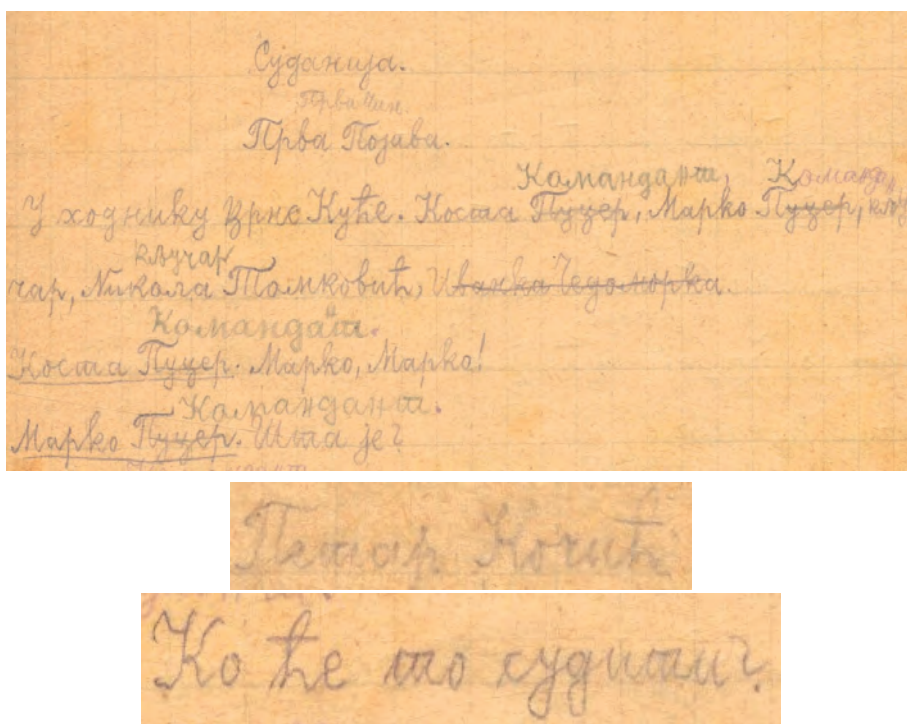 Суданија.
Први чин.
Прва Појава.
Командант, Командан
У ходнику Црне Куће. Коста Пуцер, Марко Пуцер, кљу
кључар
чар, Никола Томковић, Иванка Чедоморка.
Командант.
Коста Пуцер. Марко, Марко!
Командант.
Марко Пуцер. Шта је?
Петар Кочић
Ко ће то судити?